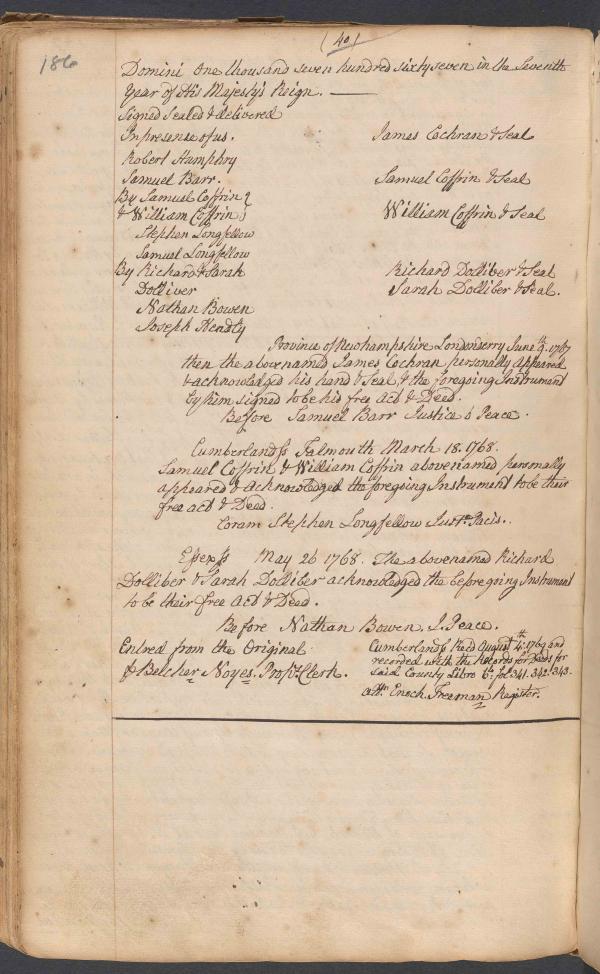 186
(40)
Domini One thousand seven hundred sixty seven in the Seventh
Year of His Majesty's Reign. ——
Signed Sealed & delivered
In presense of us.
James Cochran & Seal
Robert Humphry
Samuel Barr.
Samuel Coffrin & Seal
By Samuel Coffrin }
& William Coffrin }
William Coffrin & Seal
Stephen Longfellow
Samuel Longfellow
By Richard & Sarah
Richard Dolliber & Seal
Dolliver
Sarah Dolliber & Seal.
Nathan Bowen
Joseph Hendly
Province of Newhampshire Londonderry June 9th. 1767
then the abovenamed James Cochran personally appeared
& acknowledged his hand & Seal & the foregoing Instrument
by him signed to be his free Act & Deed.
Before Samuel Barr Justice o Peace.
Cumberland ss Falmouth March 18. 1768.
Samuel Coffrin & William Coffin abovenamed personally
appeared & acknowledged the foregoing Instrument to be their
free act & Deed.
Coram Stephen Longfellow Just. Pacis..
Essex ss May 26 1768. The abovenamed Richard
Dolliber & Sarah Dolliber acknowledged the beforegoing Instrument
to be their free Act & Deed.
Before Nathan Bowen. J. Peace.
Entred from the Original
p Belcher Noyes. Propts. Clerk.
Cumberland ss Recd August 4th. 1769 and
recorded with the Records for Deeds for
said County Libro 6. fol. 341. 342. 343.
Attr. Enoch Freeman Register.